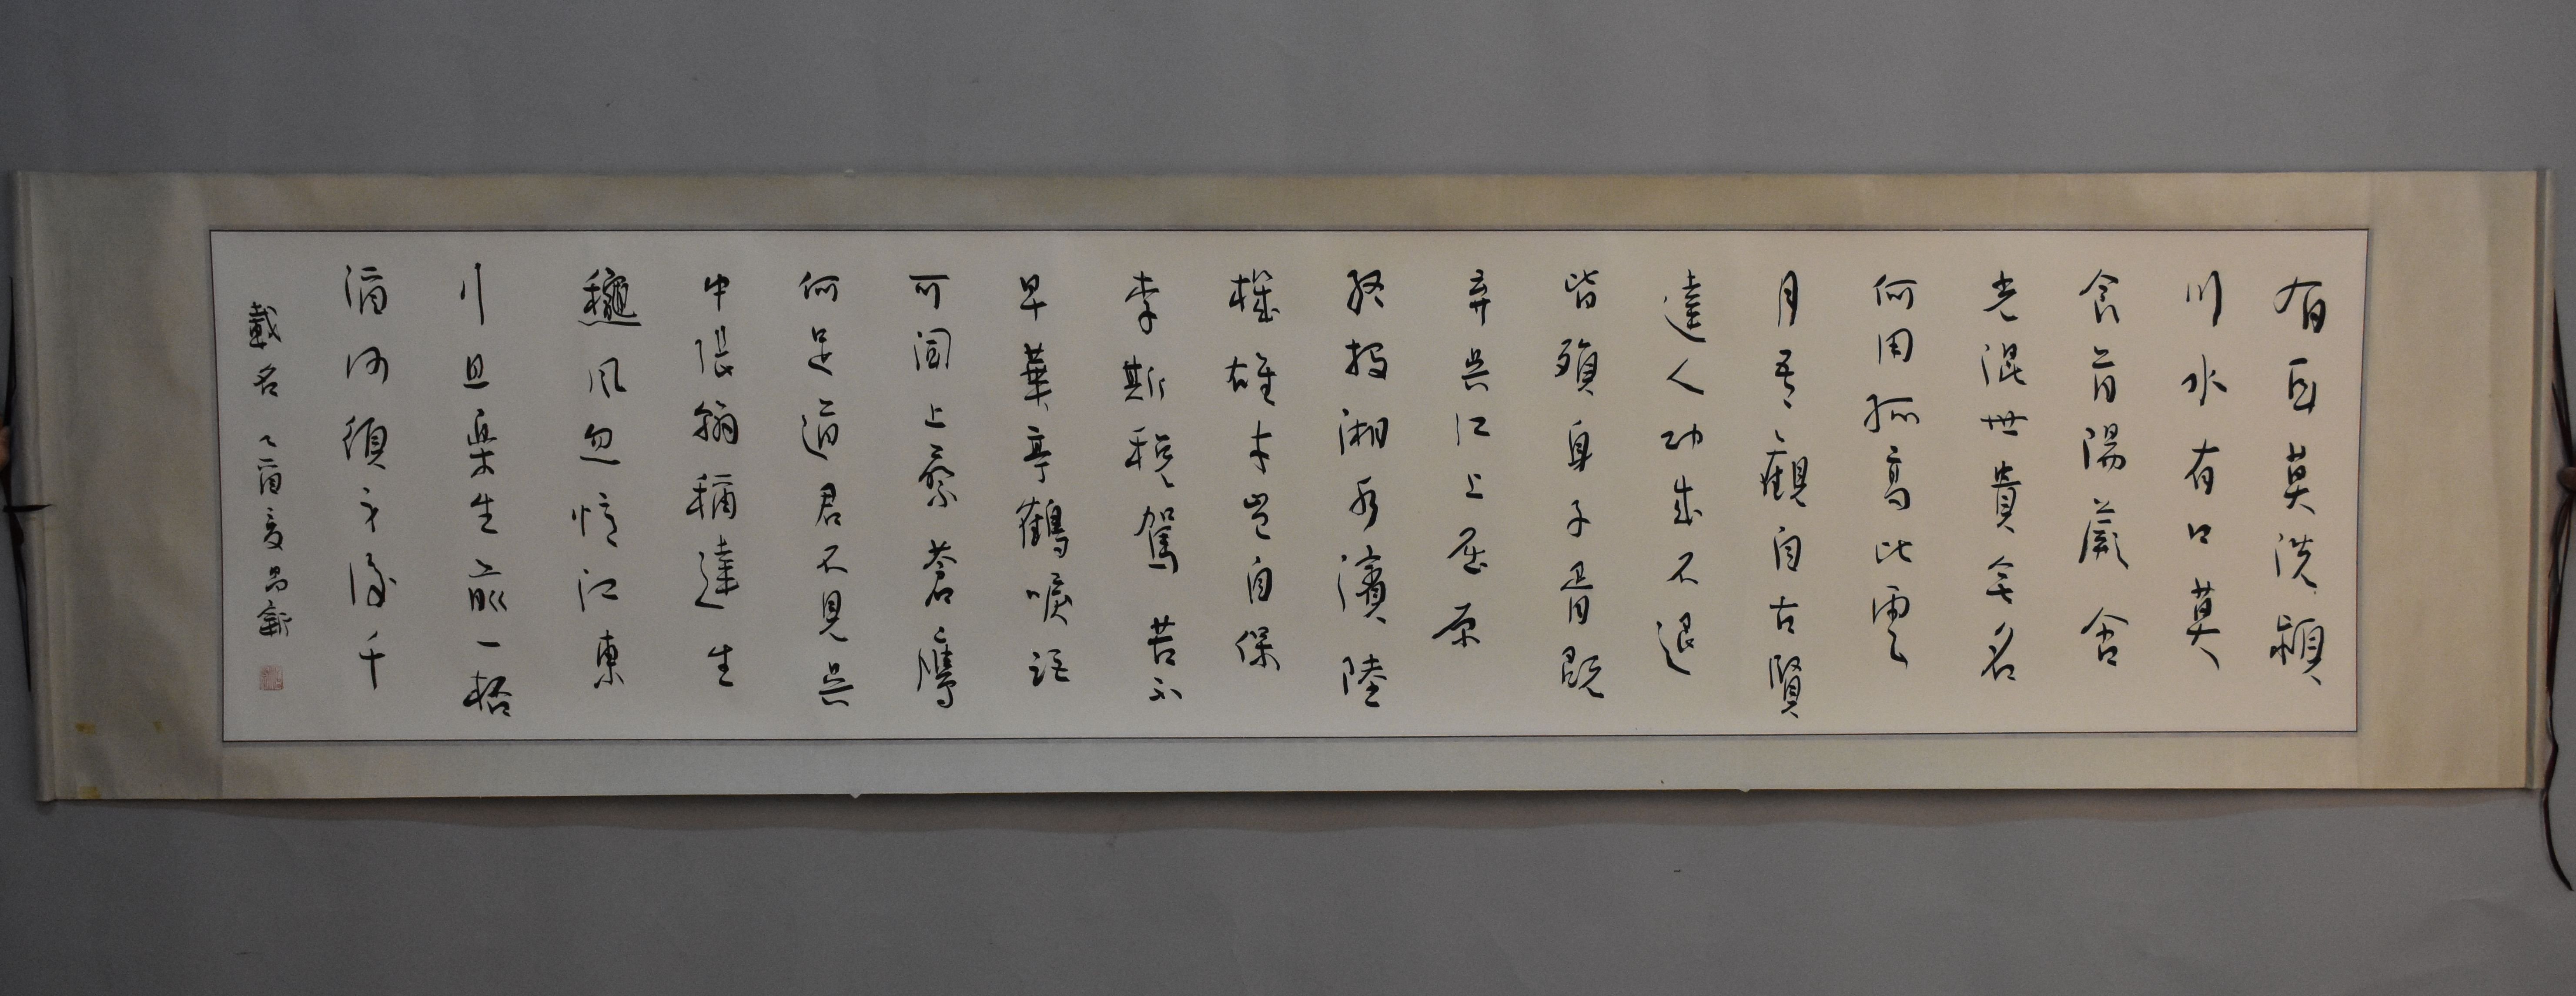 有耳莫洗潁
川水有口莫
食首陽蕨含
光混世貴無名
何用孤高比雲
月吾觀自古賢
達人功成不退
皆殞身子胥既
棄吳江上屈原
終投湘水濱陸
機雄才豈自保
李斯稅駕苦不
早華亭鶴唳詎
可聞上蔡蒼鷹
何足道君不見吳
中張翰稱達生
龝風忽憶江東
行且樂生前一杯
酒何須身後千
載名 乙酉夏